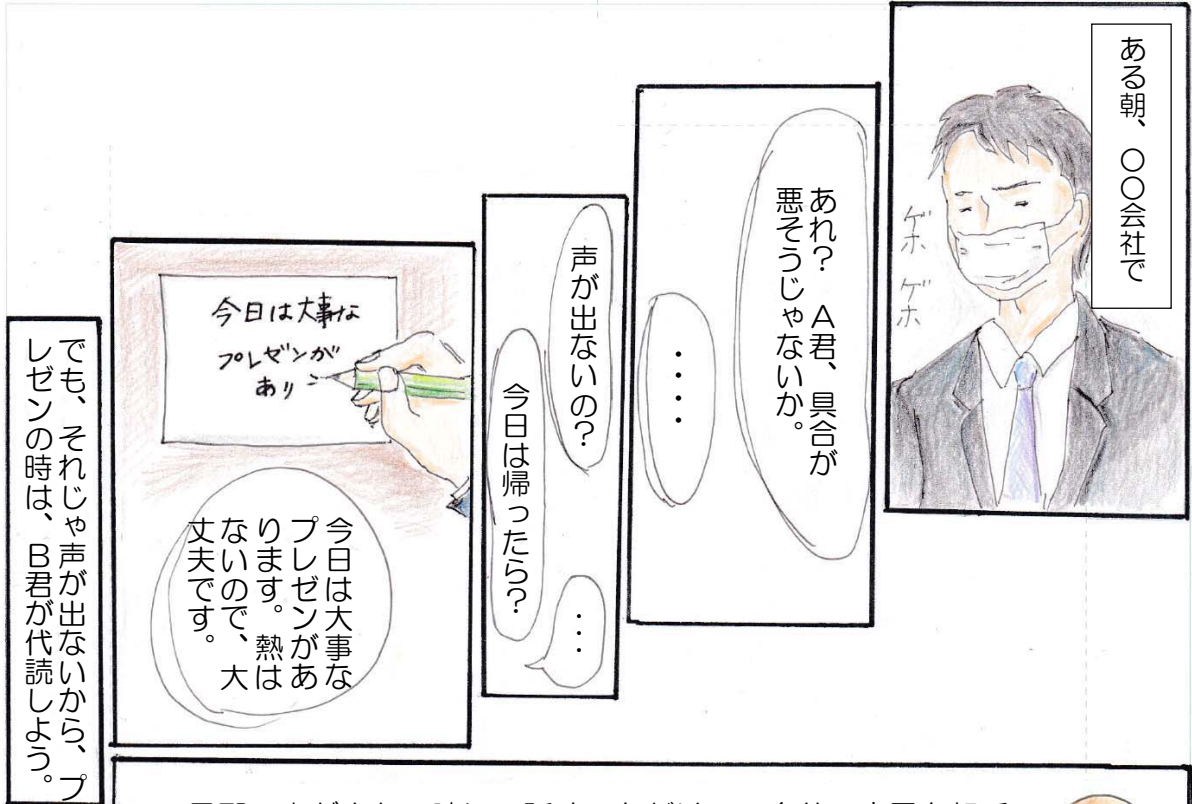 ある朝、〇〇会社で
ゲホ
ゲホ
あれ? A君、具合が
悪そうじゃないか。
・・・・
声が出ないの?
今日は帰ったら?
・・・
今日は大事な
プレゼンが
あり
今日は大事な
プレゼンがあ
ります。熱は
ないので、大
丈夫です。
でも、それじゃ声が出ないから、プ
レゼンの時は、B君が代読しよう。